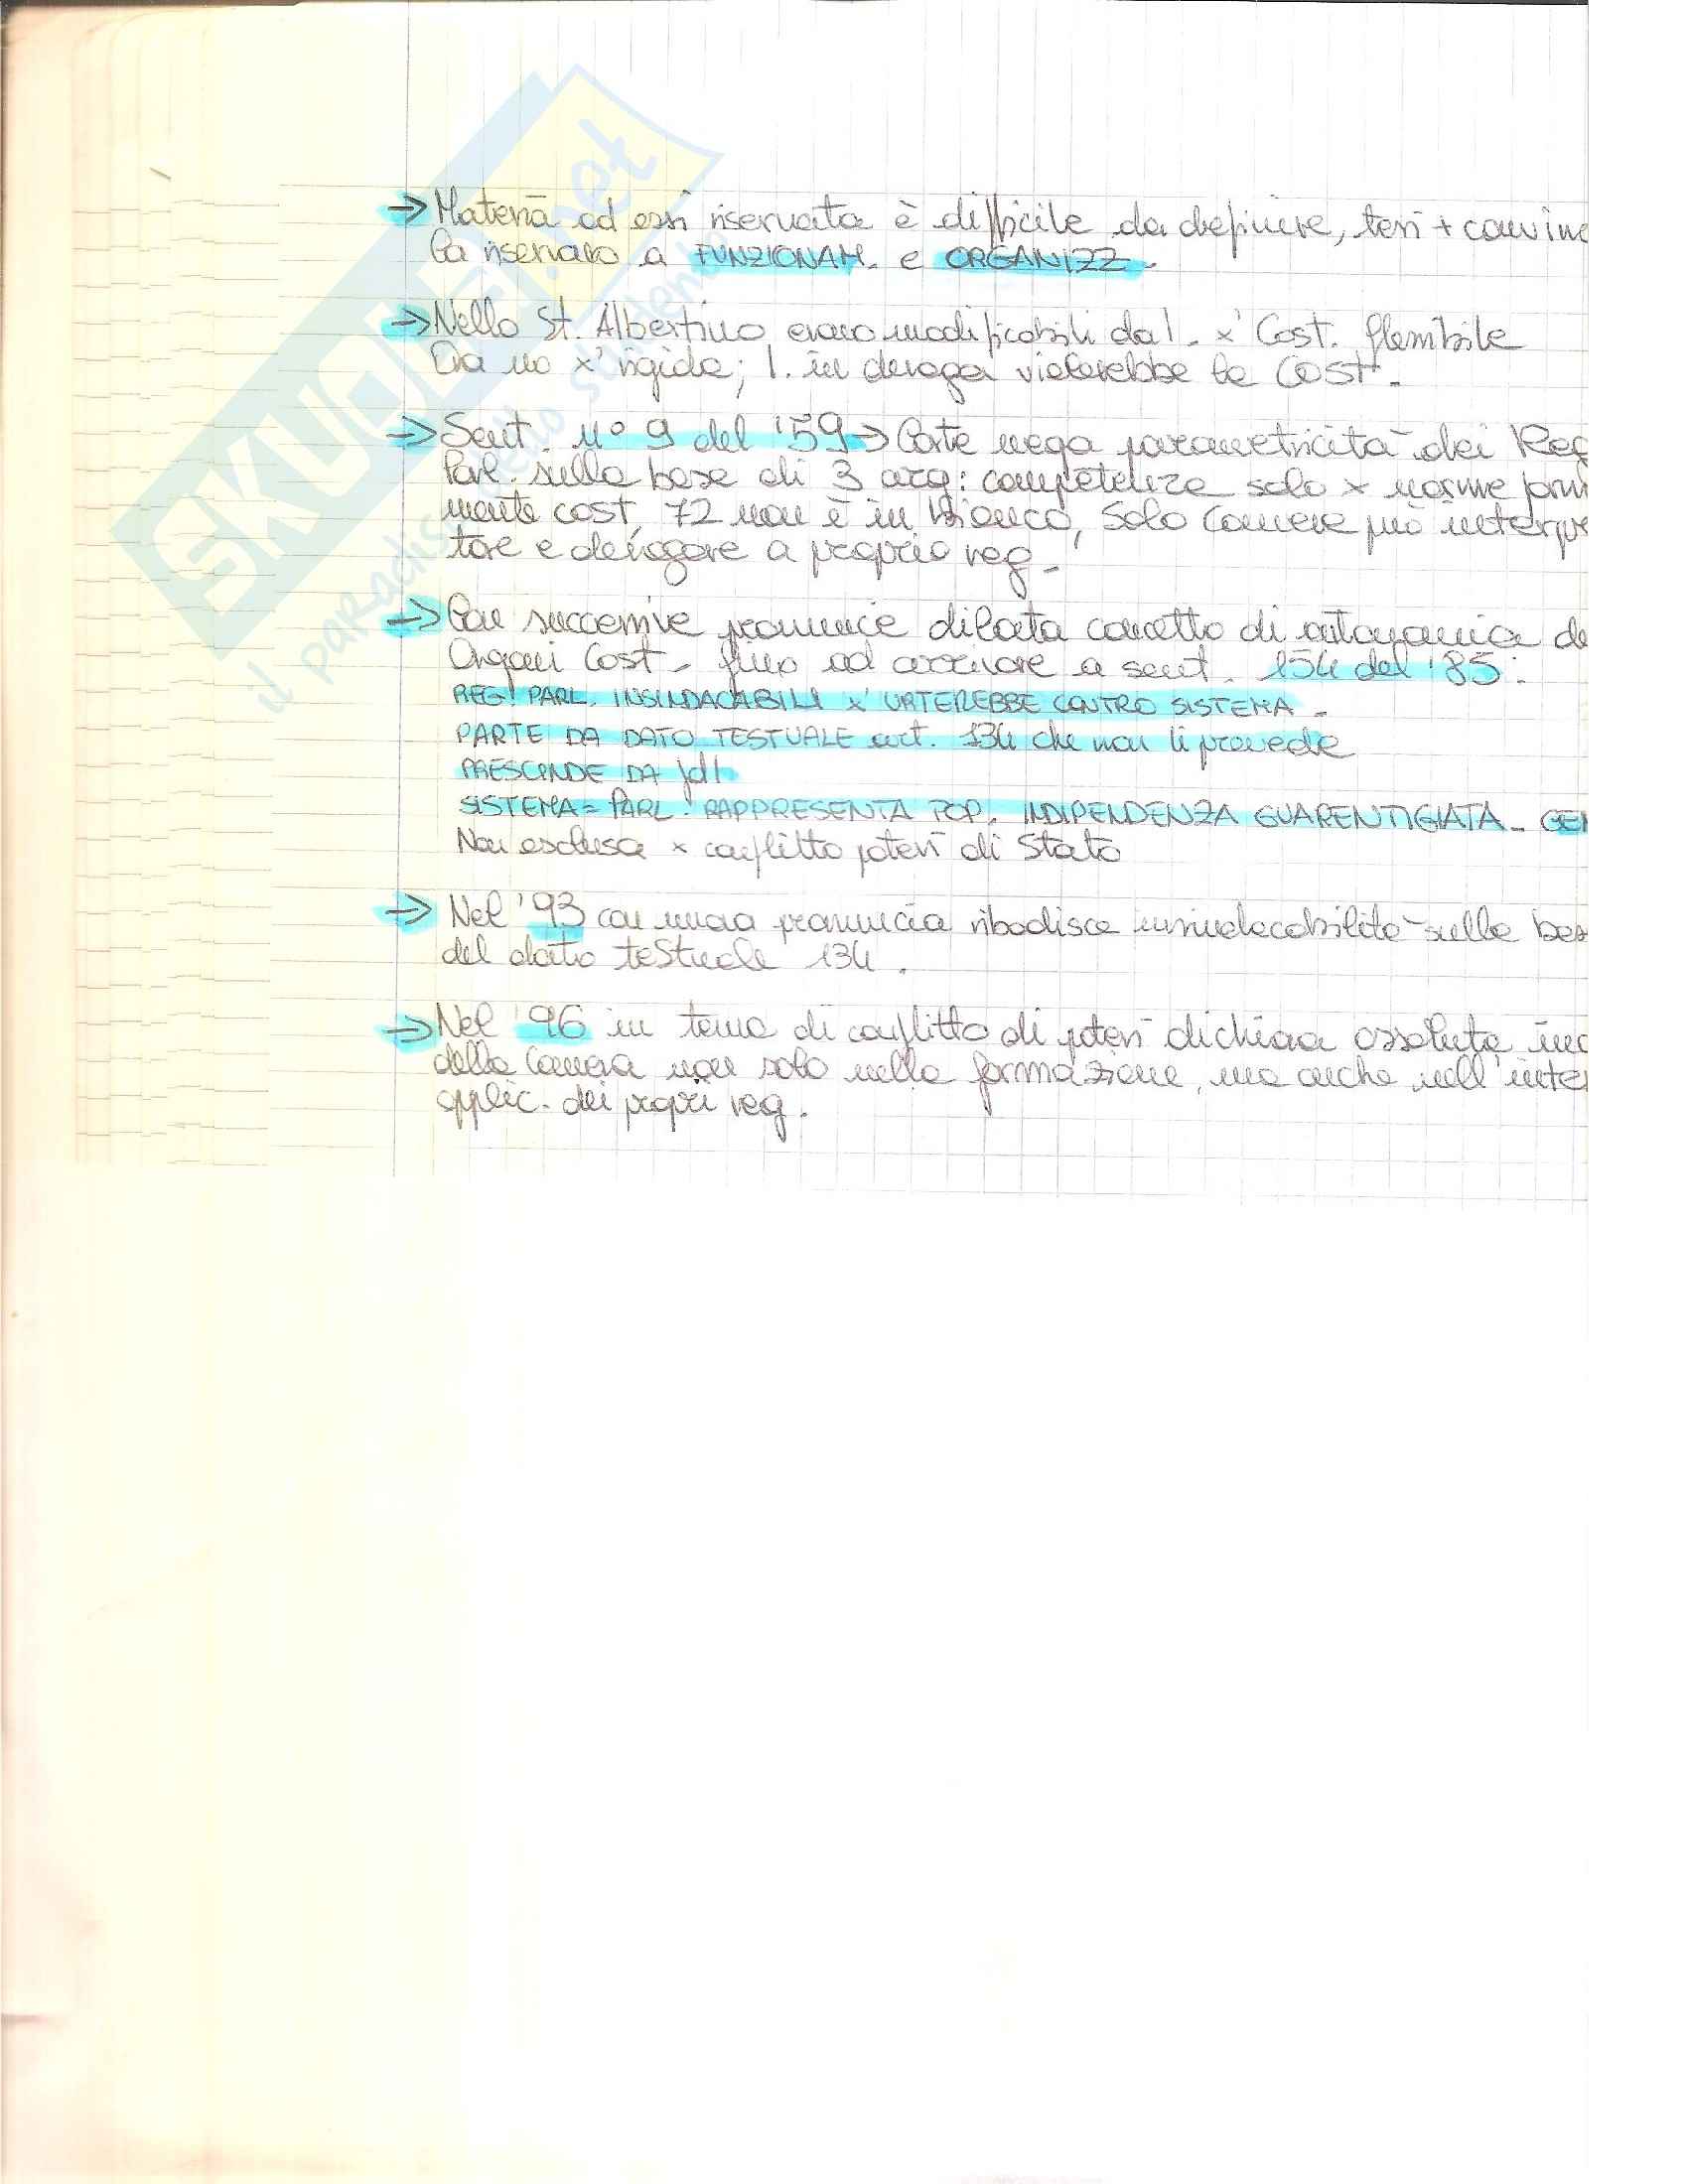 → Materia ad essi riservata è difficile da definire, tesi + convinc
la riservano a FUNZIONAM. e ORGANIZZ.
→ Nello St. Albertino erano modificabili da l. x' Cost. flessibile
Ora no x' rigida; l. in deroga violerebbe la Cost.
→ Sent. n° 9 del '59 → Corte nega parametricità dei Reg
Parl. sulla base di 3 arg: competenza solo x norme form
mente cost, 72 non è in bianco, solo Camere può interpre
tare e derogare a proprio reg.
→ Con successive pronunce dilata concetto di autonomia de
Organi Cost. fino ad arrivare a sent. 154 del '85:
REG. PARL. INSINDACABILI x' URTEREBBE CONTRO SISTEMA
PARTE DA DATO TESTUALE art. 134 che non li prevede
PRESCINDE DA
SISTEMA = PARL. RAPPRESENTA POP. INDIPENDENZA GUARENTIGIATA
Non esclusa x conflitto poteri di Stato
→ Nel '93 con nuova pronuncia ribadisce insindacabilità sulla bas
del dato testuale 134.
→ Nel '96 in tema di conflitto di poteri dichiara assoluta ind
della Camera non solo nella formazione, ma anche nell'inter
applic. dei propri reg.
SKUOLA.net
il paradiso dello studente